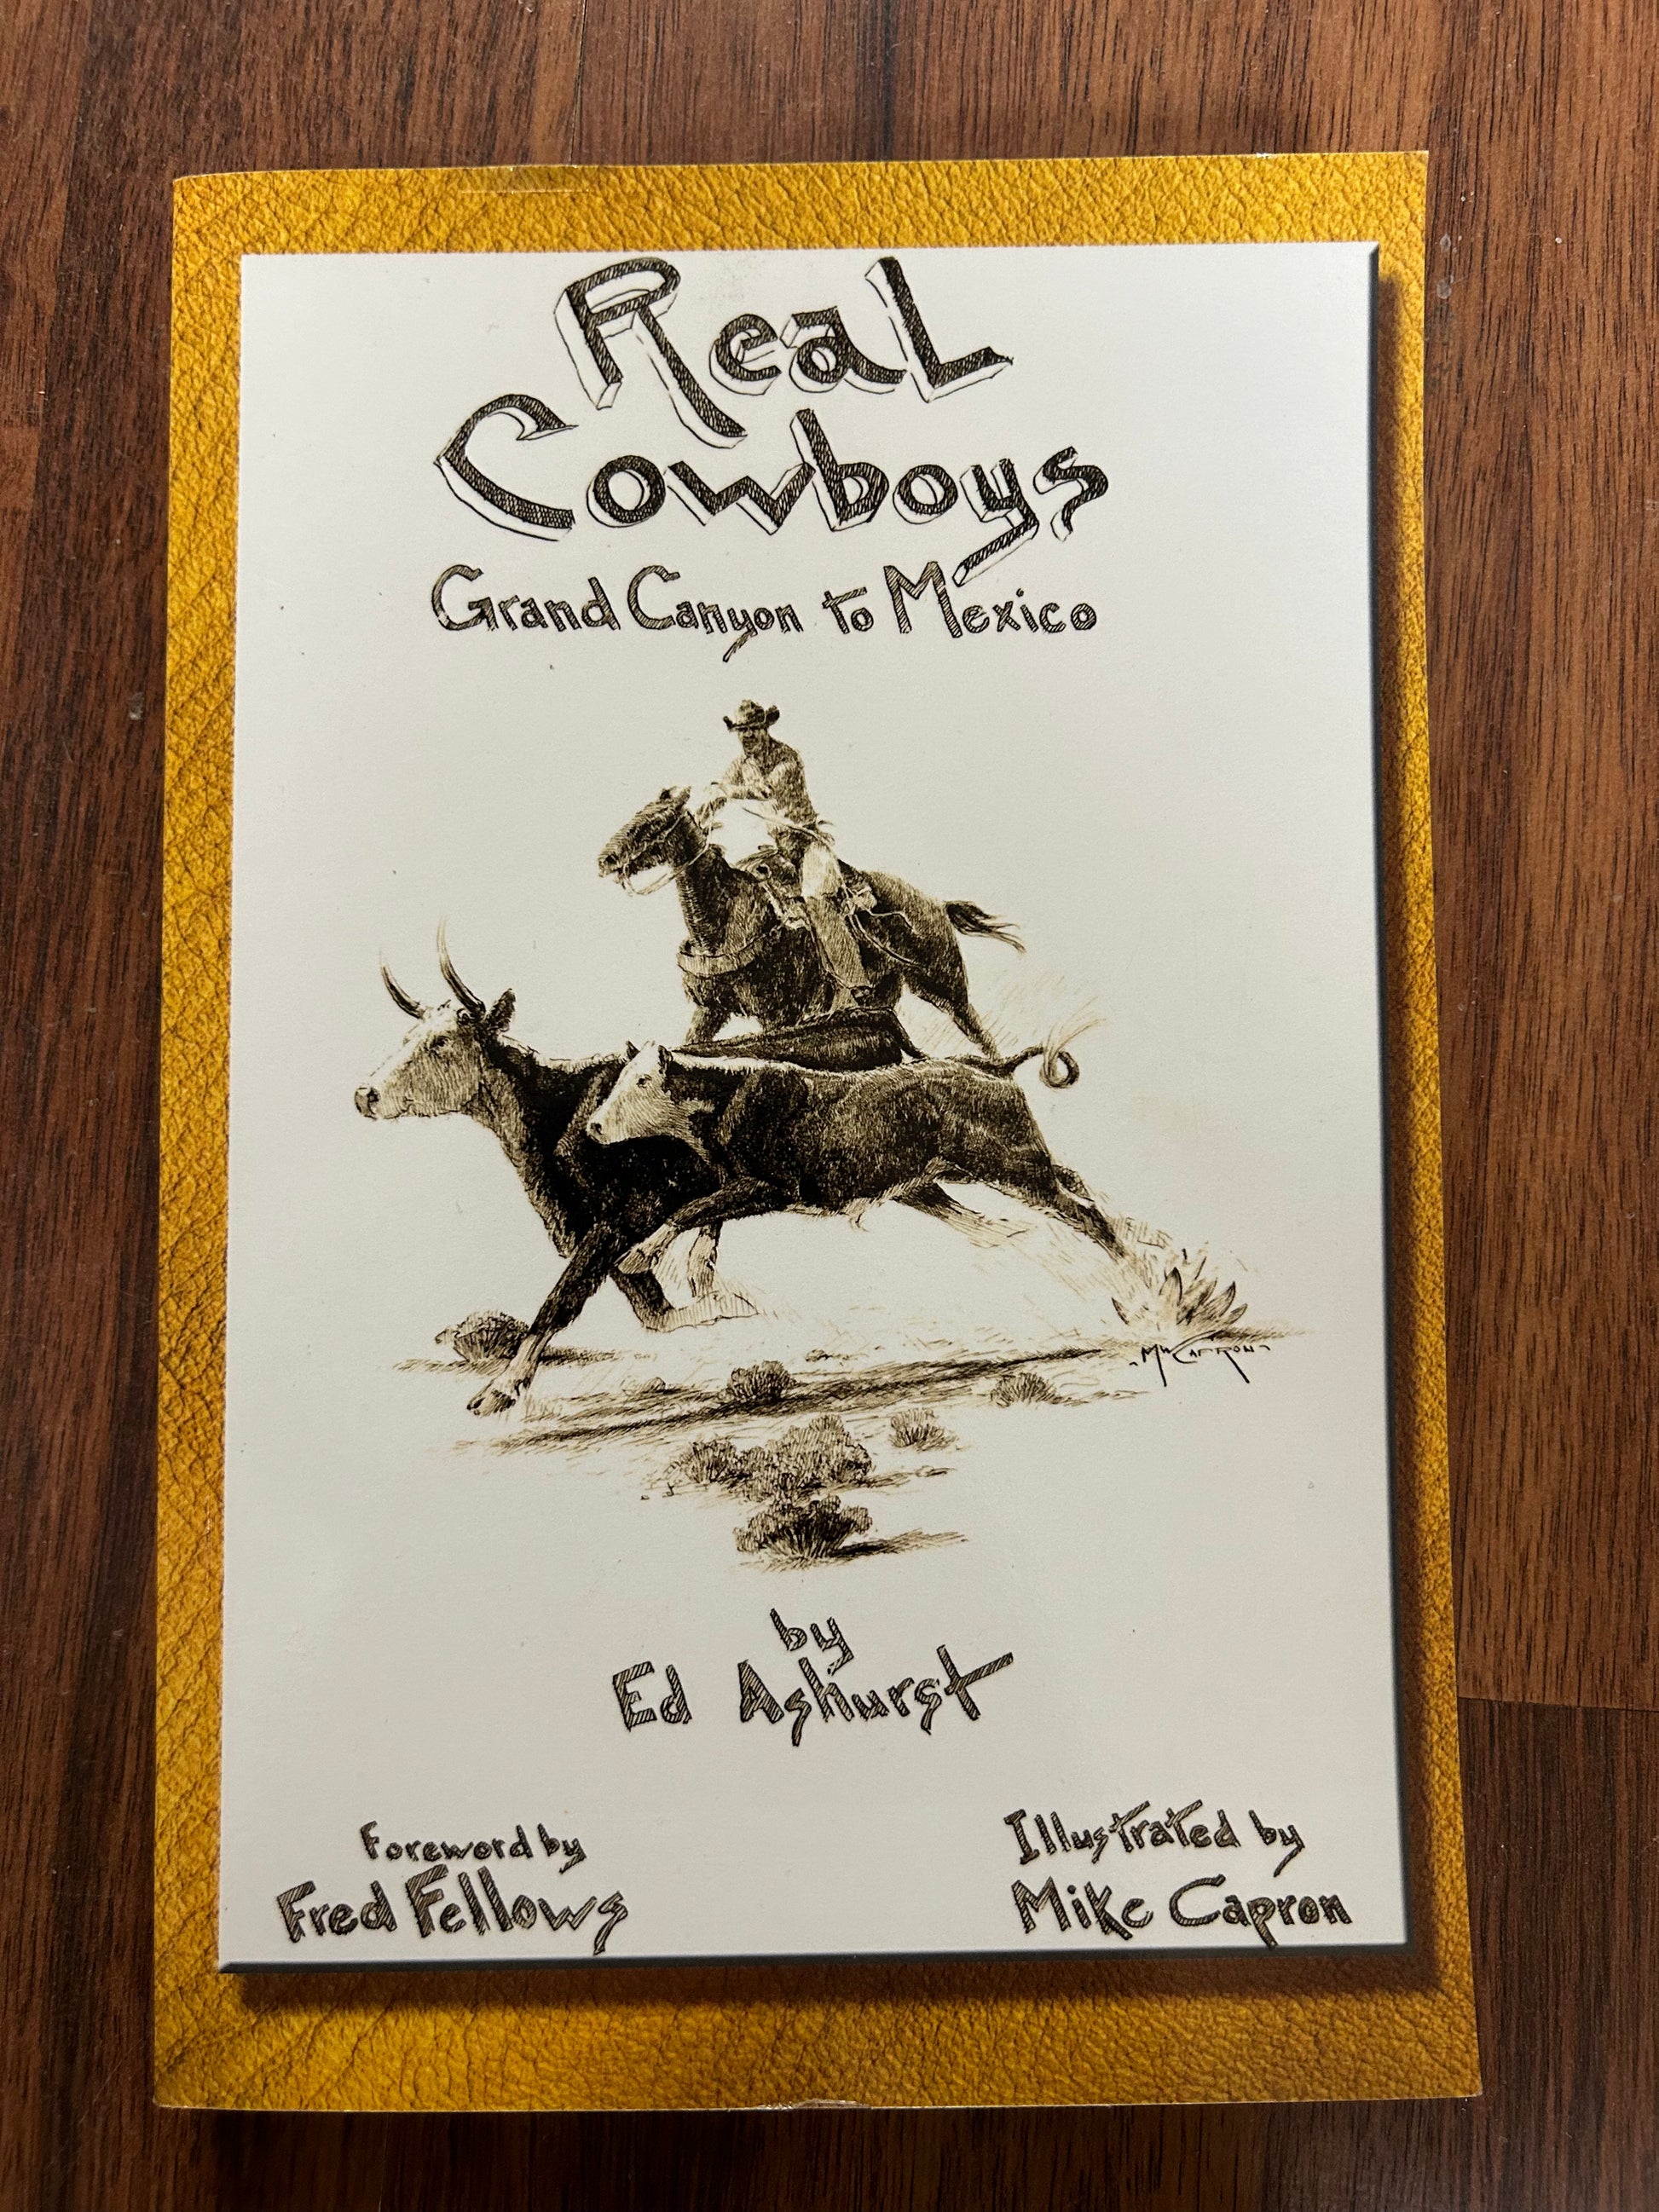 Real
Cowboys
Grand Canyon to Mexico
MW CAPRON
by
Ed Ashurst
Foreword by
Fred Fellows
Illustrated by
Mike Capron